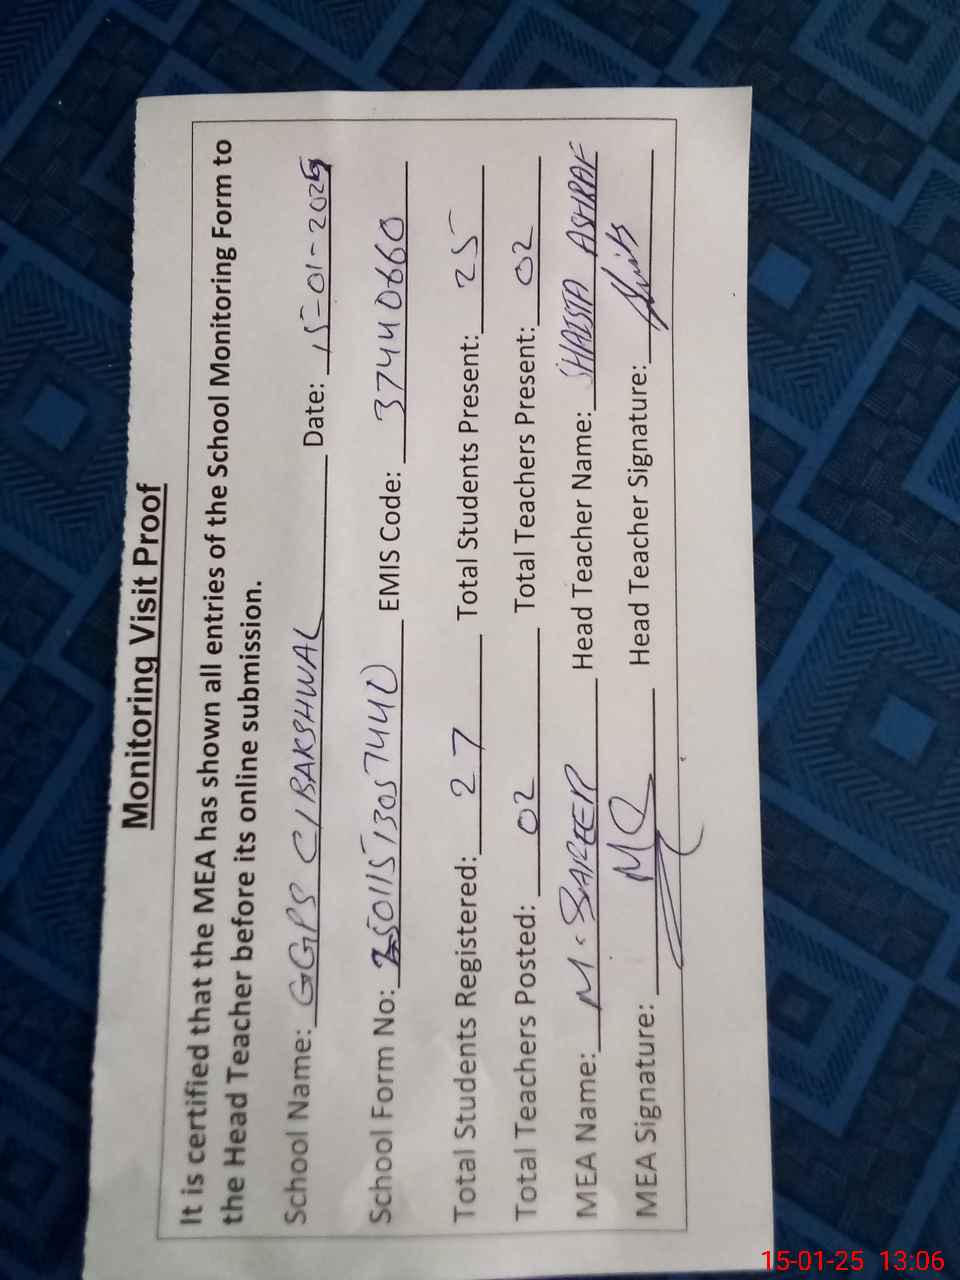 Monitoring Visit Proof
It is certified that the MEA has shown all entries of the School Monitoring Form to
the Head Teacher before its online submission.
School Name: GGPS C/BAKSHWAL Date: 15-01-2025
School Form No: 25011513057440 EMIS Code: 37440660
Total Students Registered: 27 Total Students Present: 25
Total Teachers Posted: 02 Total Teachers Present: 02
MEA Name: M. Head Teacher Name: SHAISTA ASHRAF
MEA Signature: Head Teacher Signature:
15-01-25 13:06